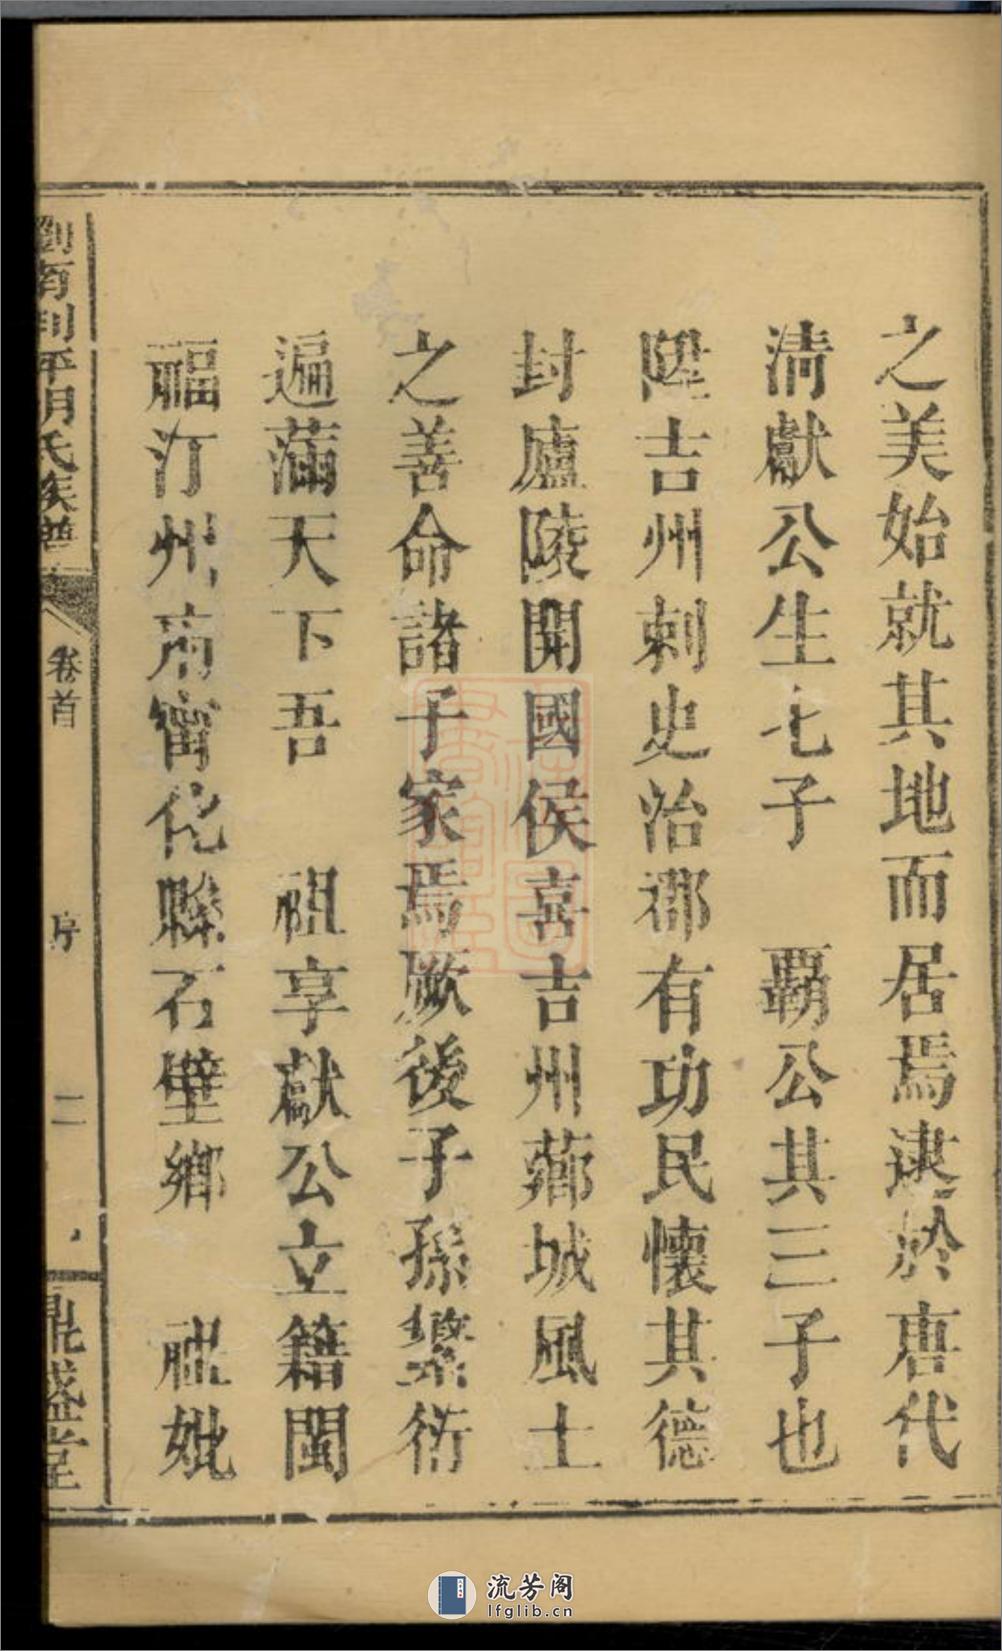 之美始就其地而居焉逮於唐代
清獻公生七子　覇公其三子也
陞吉州刺史治郡有功民懷其德
封廬陵開國侯喜吉州薌城風土
之善命諸子家焉厥後子孫繁衍
遍滿天下吾　祖享獻公立籍閩
福汀州府甯化縣石壁鄉　祖妣
劉氏族譜
卷首
序
二
鼎盛堂
流芳阁
lfglib.cn